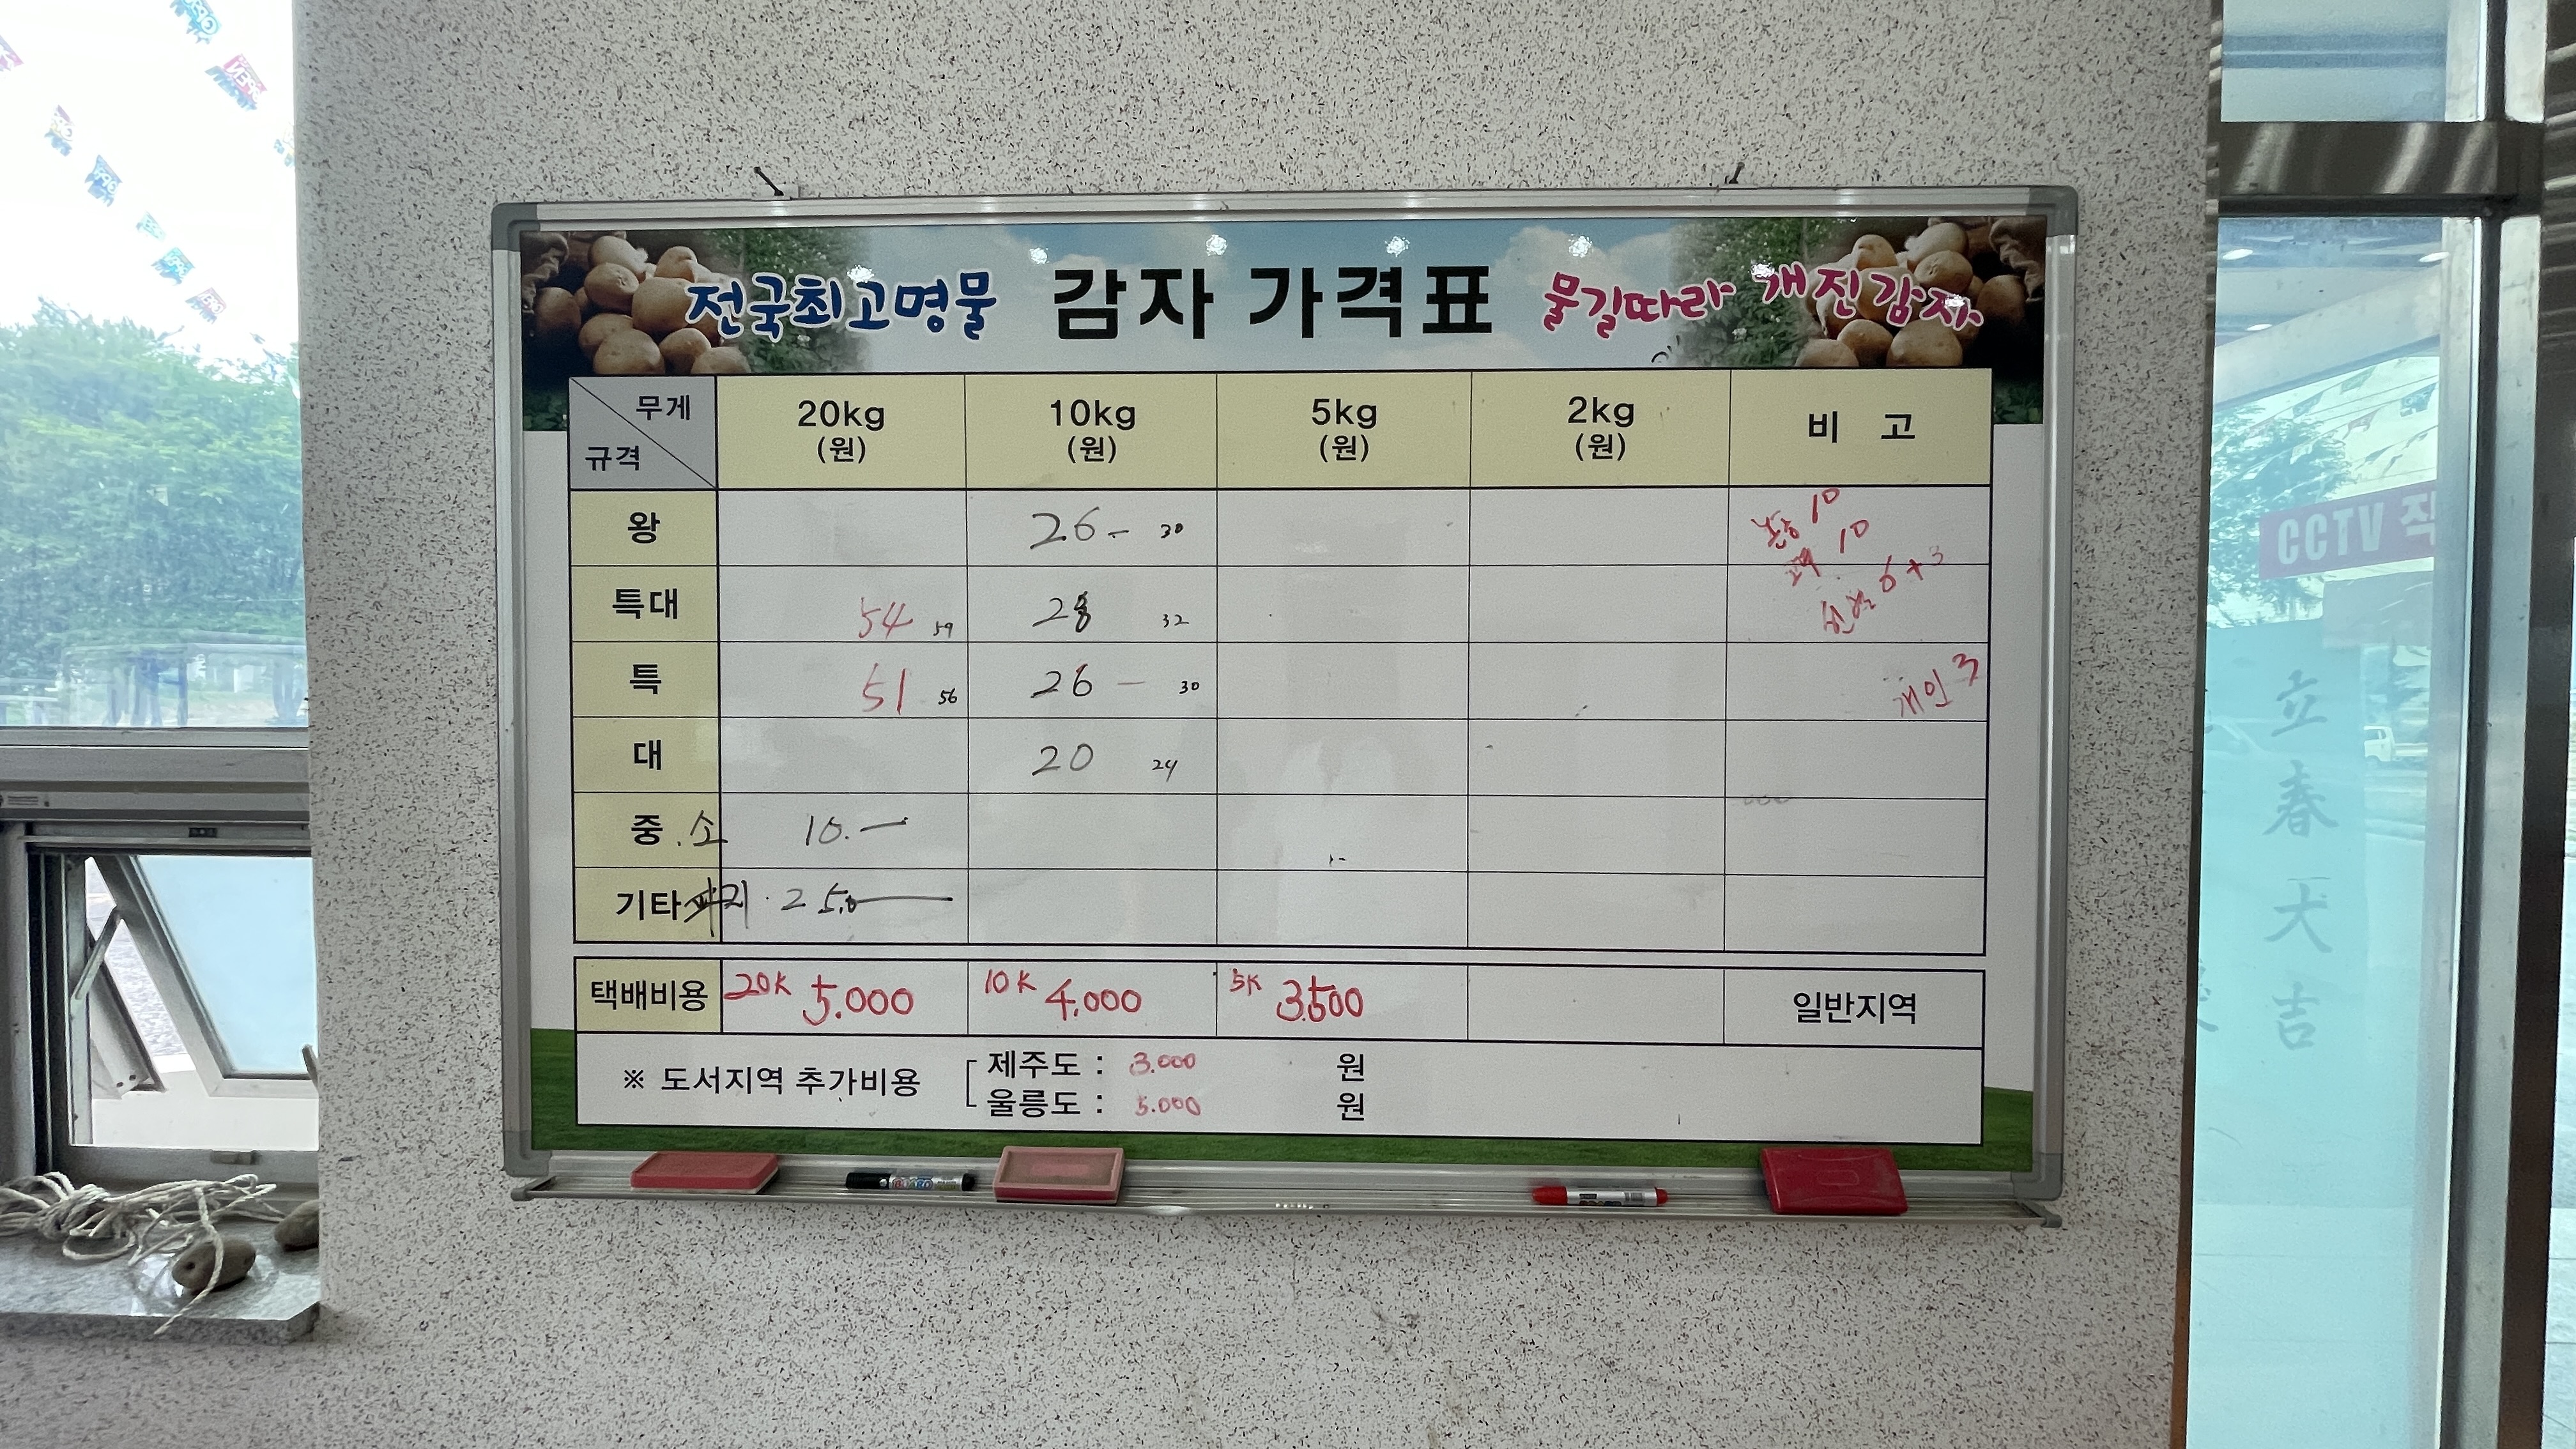 전국최고명물 감자 가격표 물길따라 개진감자
무게 20kg 10kg 5kg 2kg 비 고
규격 (원) (원) (원) (원)
왕 26- 30 10
10
특대 54 59 28 32 6+3
특 51 56 26 - 30 개인 3
대 20 24
중.소 10.-
기타 파지. 25.0
택배비용 20K 5.000 10K 4.000 5K 3.500 일반지역
※ 도서지역 추가비용 제주도 : 3.000 원
울릉도 : 5.000 원
CCTV 작
立春大吉